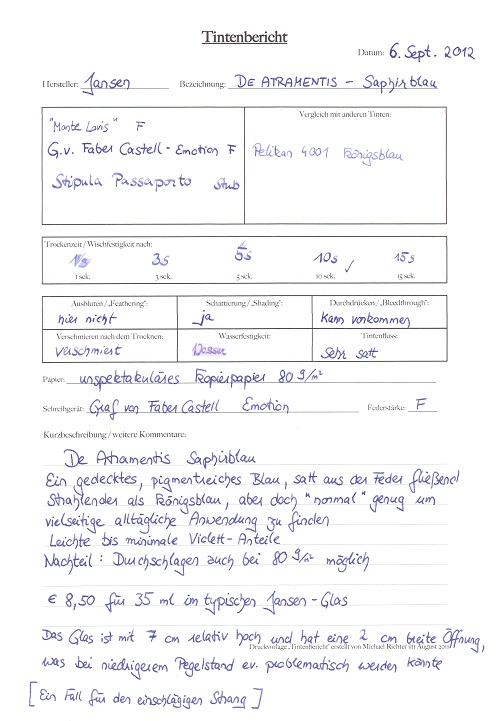 Tintenbericht
Datum: 6. Sept. 2012
Hersteller: Jansen Bezeichnung: DE ATRAMENTIS - Saphirblau
"Monte Lovis" F
G.v. Faber Castell - Emotion F
Stipula Passaporto Stub
Vergleich mit anderen Tinten:
Pelikan 4001 Königsblau
Trockenzeit / Wischfestigkeit nach:
1s 3s 5s 10s ✓ 15s
1 sek. 3 sek. 5 sek. 10 sek. 15 sek.
Ausbluten / „Feathering": Schattierung / „Shading": Durchdrücken / „Bleedthrough":
hier nicht ja kann vorkommen
Verschmieren nach dem Trocknen: Wasserfestigkeit: Tintenfluss:
verschmiert Wasser sehr satt
Papier: unspektakuläres Kopierpapier 80 g/m²
Schreibgerät: Graf von Faber Castell Emotion Federstärke: F
Kurzbeschreibung / weitere Kommentare:
De Atramentis Saphirblau
Ein gedecktes, pigmentreiches Blau, satt aus der Feder fließend
Strahlender als Königsblau, aber doch "normal" genug um
vielseitige alltägliche Anwendung zu finden
Leichte bis minimale Violett-Anteile
Nachteil: Durchschlagen auch bei 80 g/m² möglich
€ 8,50 für 35 ml im typischen Jansen-Glas
Das Glas ist mit 7 cm relativ hoch und hat eine 2 cm breite Öffnung,
Druckvorlage „Tintenbericht" erstellt von Michael Richter im August 2011
was bei niedrigerem Pegelstand ev. problematisch werden könnte
[Ein Fall für den einschlägigen Strang]